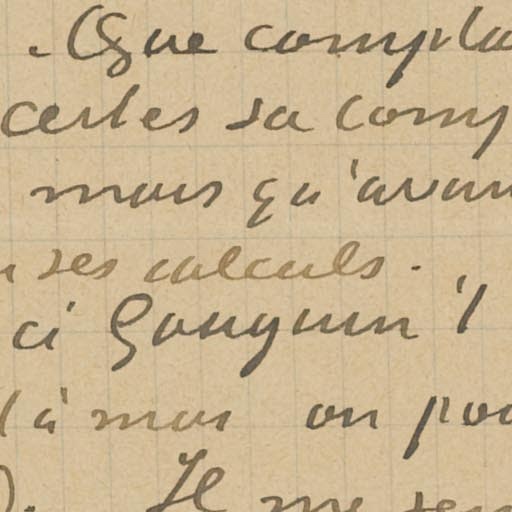 . Que compl
certes sa comp
mais qu'avan
ses calculs.
ci Gauguin
là mais on pou
). Il me sem